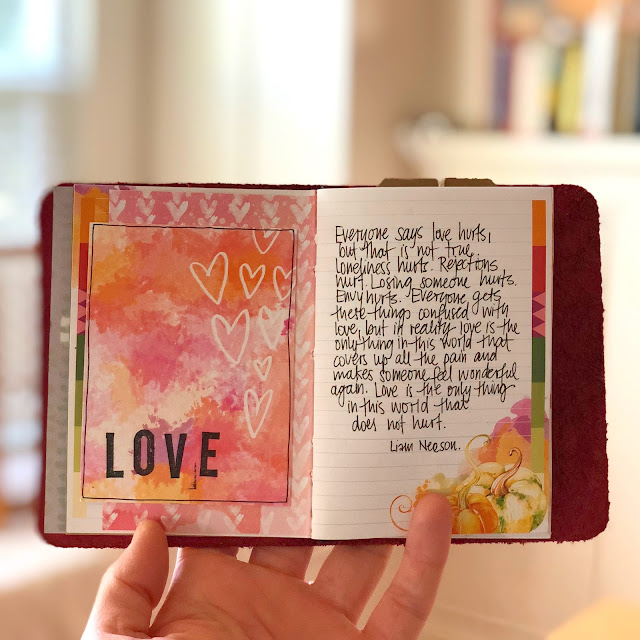 LOVE
Everyone says love hurts,
but that is not true.
Loneliness hurts. Rejections
hurt. Losing someone hurts.
Envy hurts. Everyone gets
these things confused with
love, but in reality love is the
only thing in this world that
covers up all the pain and
makes someone feel wonderful
again. Love is the only thing
in this world that
does not hurt.
Liam Neeson.